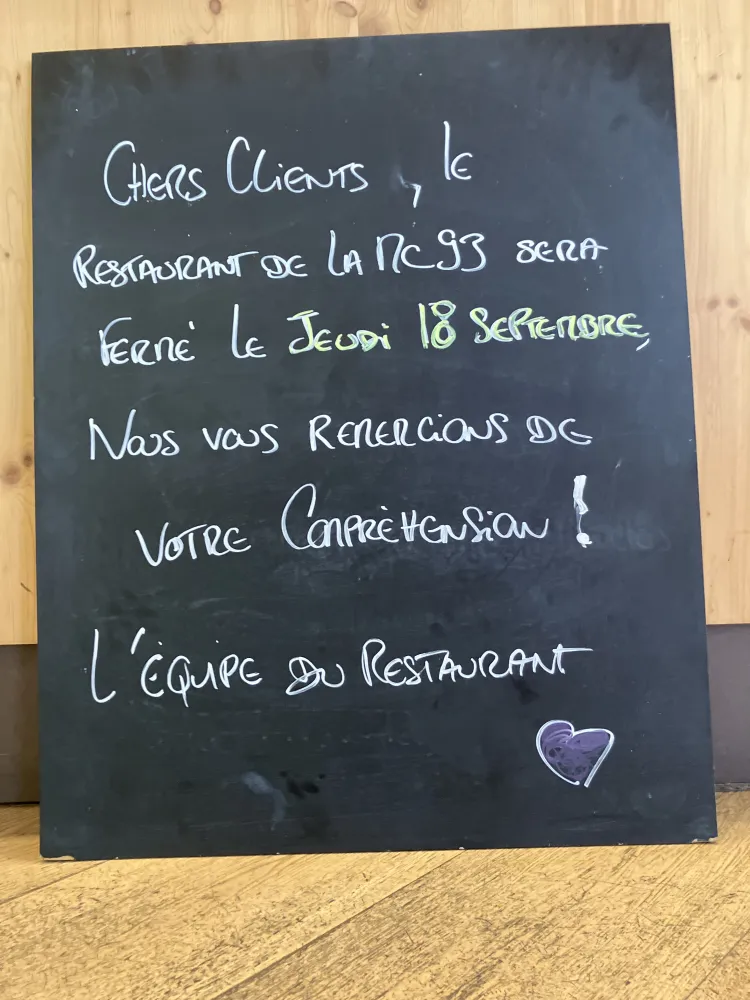 CHERS CLIENTS, LE
RESTAURANT DE LA MC93 SERA
FERMÉ LE JEUDI 18 SEPTEMBRE,
NOUS VOUS REMERCIONS DE
VOTRE COMPRÉHENSION !
L'ÉQUIPE DU RESTAURANT